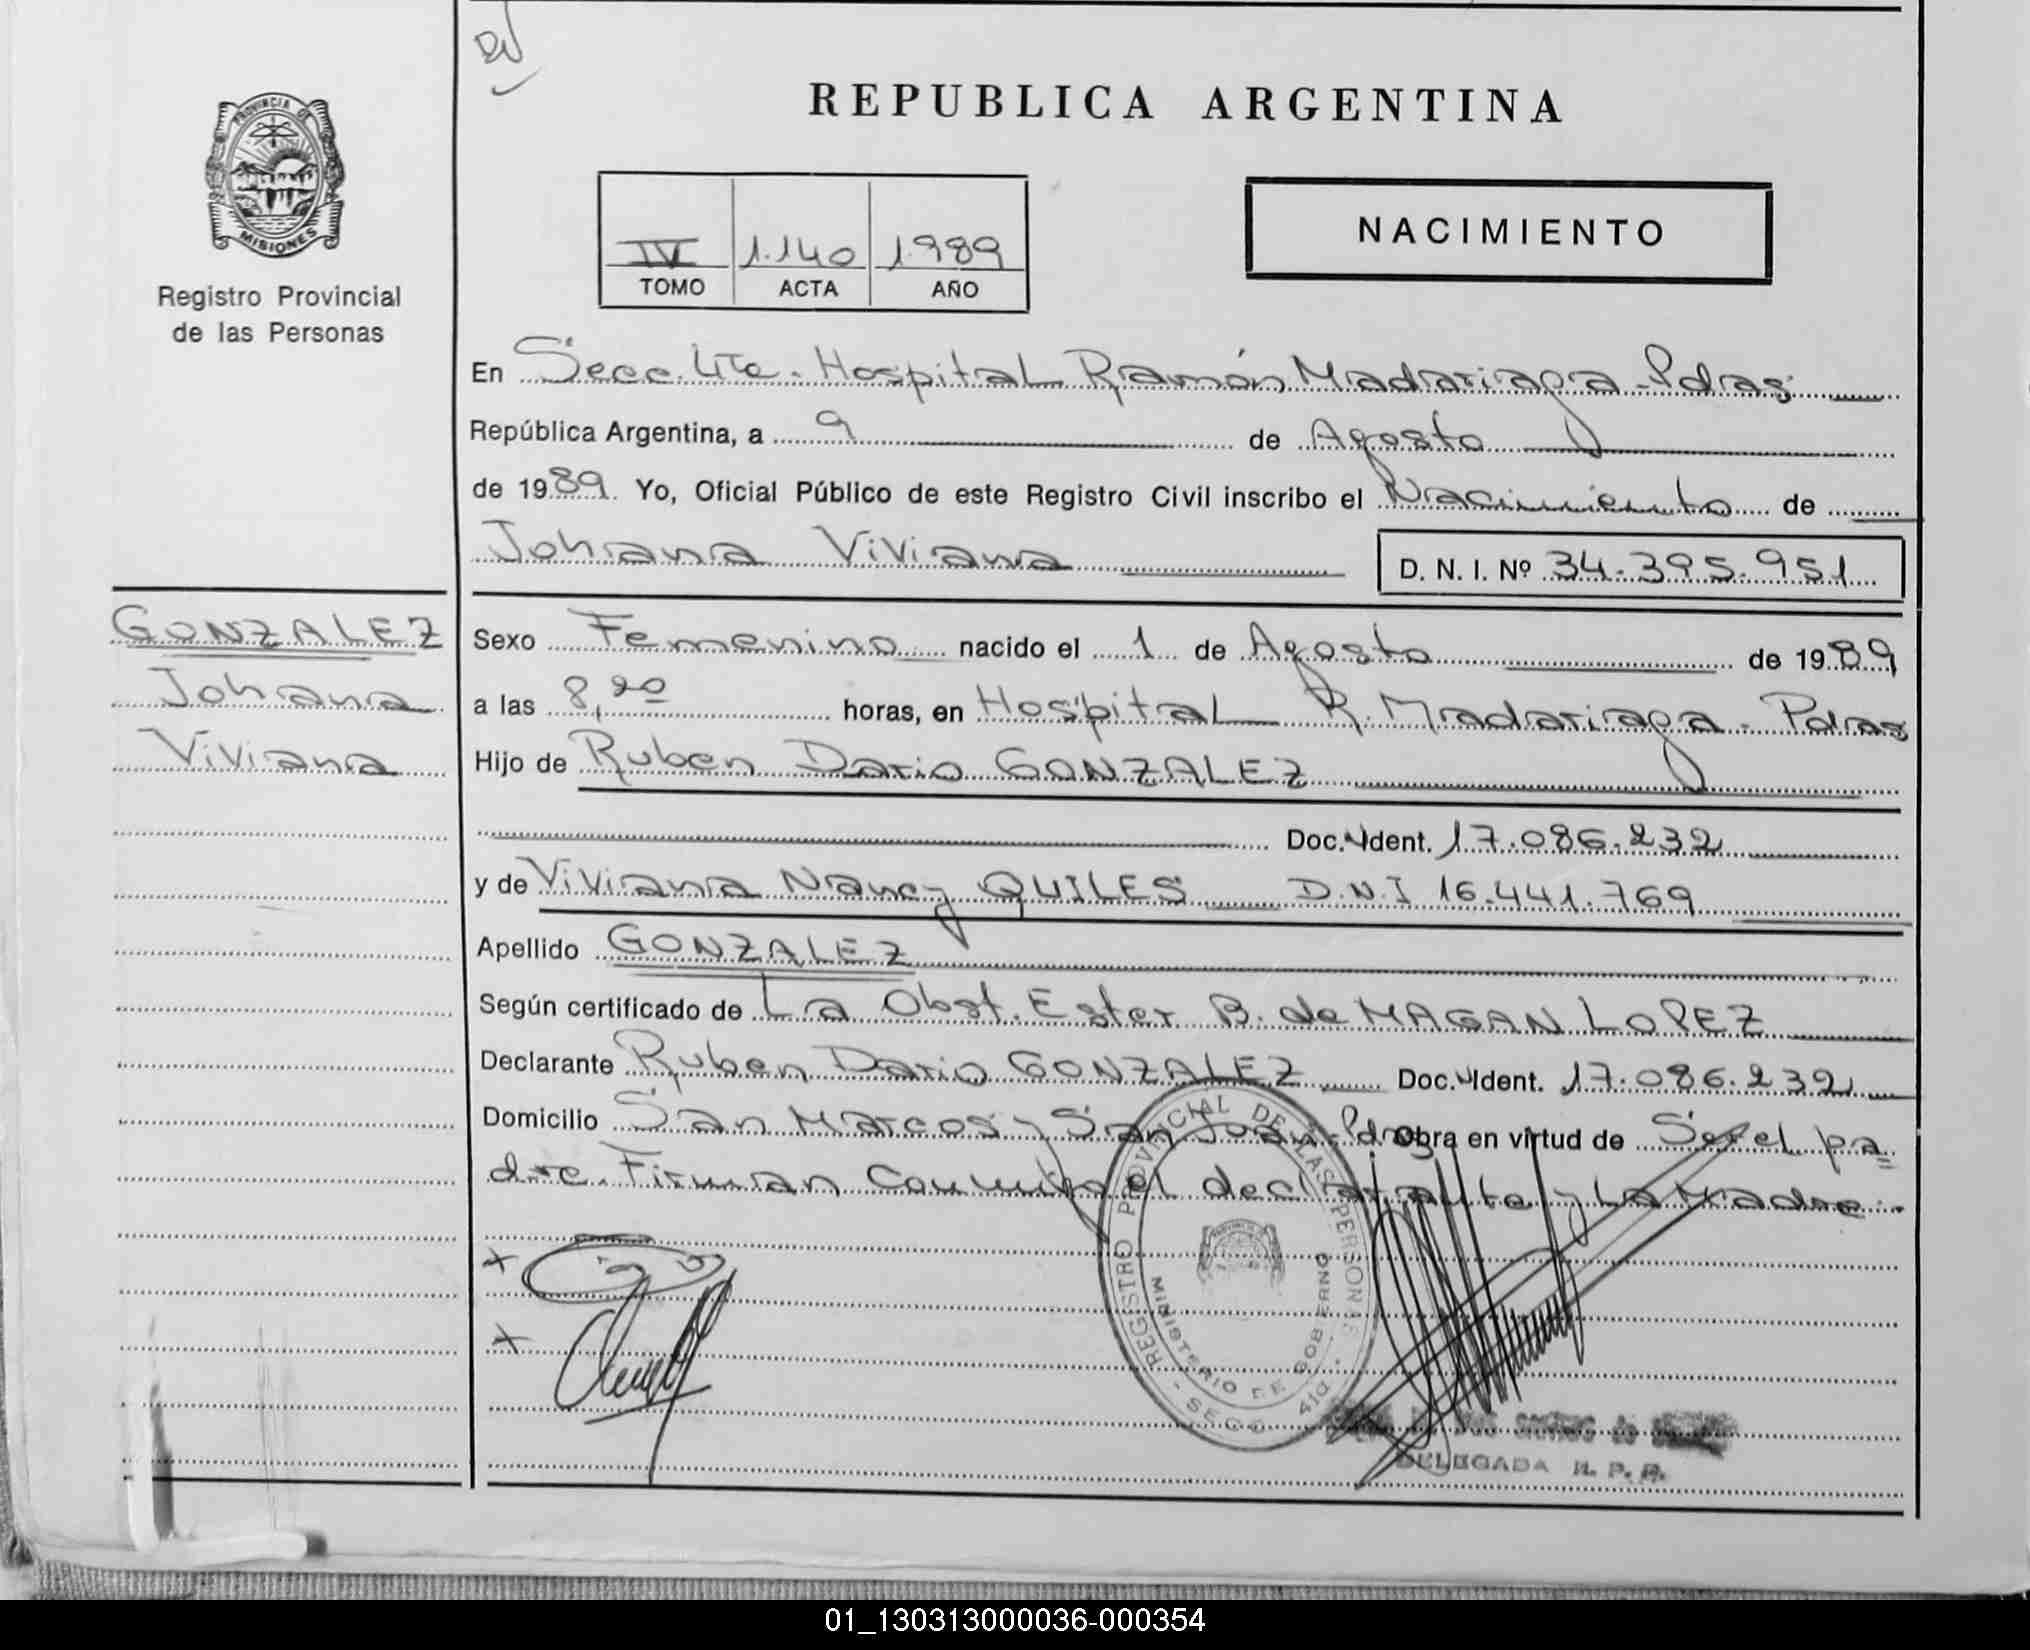 DV
REPUBLICA ARGENTINA
PROVINCIA DE MISIONES
Registro Provincial
de las Personas
IV 1.140 1.989
TOMO ACTA AÑO
NACIMIENTO
En Secc. 4ta. Hospital Ramón Madariaga - Pdas
República Argentina, a 9 de Agosto
de 1989. Yo, Oficial Público de este Registro Civil inscribo el Nacimiento de
Johana Viviana D. N. I. Nº 34.395.951
GONZALEZ
Johana
Viviana
Sexo Femenino nacido el 1 de Agosto de 1989
a las 8,20 horas, en Hospital R. Madariaga - Pdas
Hijo de Ruben Dario GONZALEZ
Doc. Ident. 17.086.232
y de Viviana Nancy QUILES D.N.I 16.441.769
Apellido GONZALEZ
Según certificado de La Obst. Ester B. de MAGAN LOPEZ
Declarante Ruben Dario GONZALEZ Doc. Ident. 17.086.232
Domicilio San Marcos y San Juan - Pdas Obra en virtud de Ser el pa=
dre. Firman Conmigo el declarante y La Madre.
REGISTRO PROVINCIAL DE LAS PERSONAS
MINISTERIO DE GOBIERNO
- SECC. 4ta -
DELEGADA R. P. P.
01_130313000036-000354